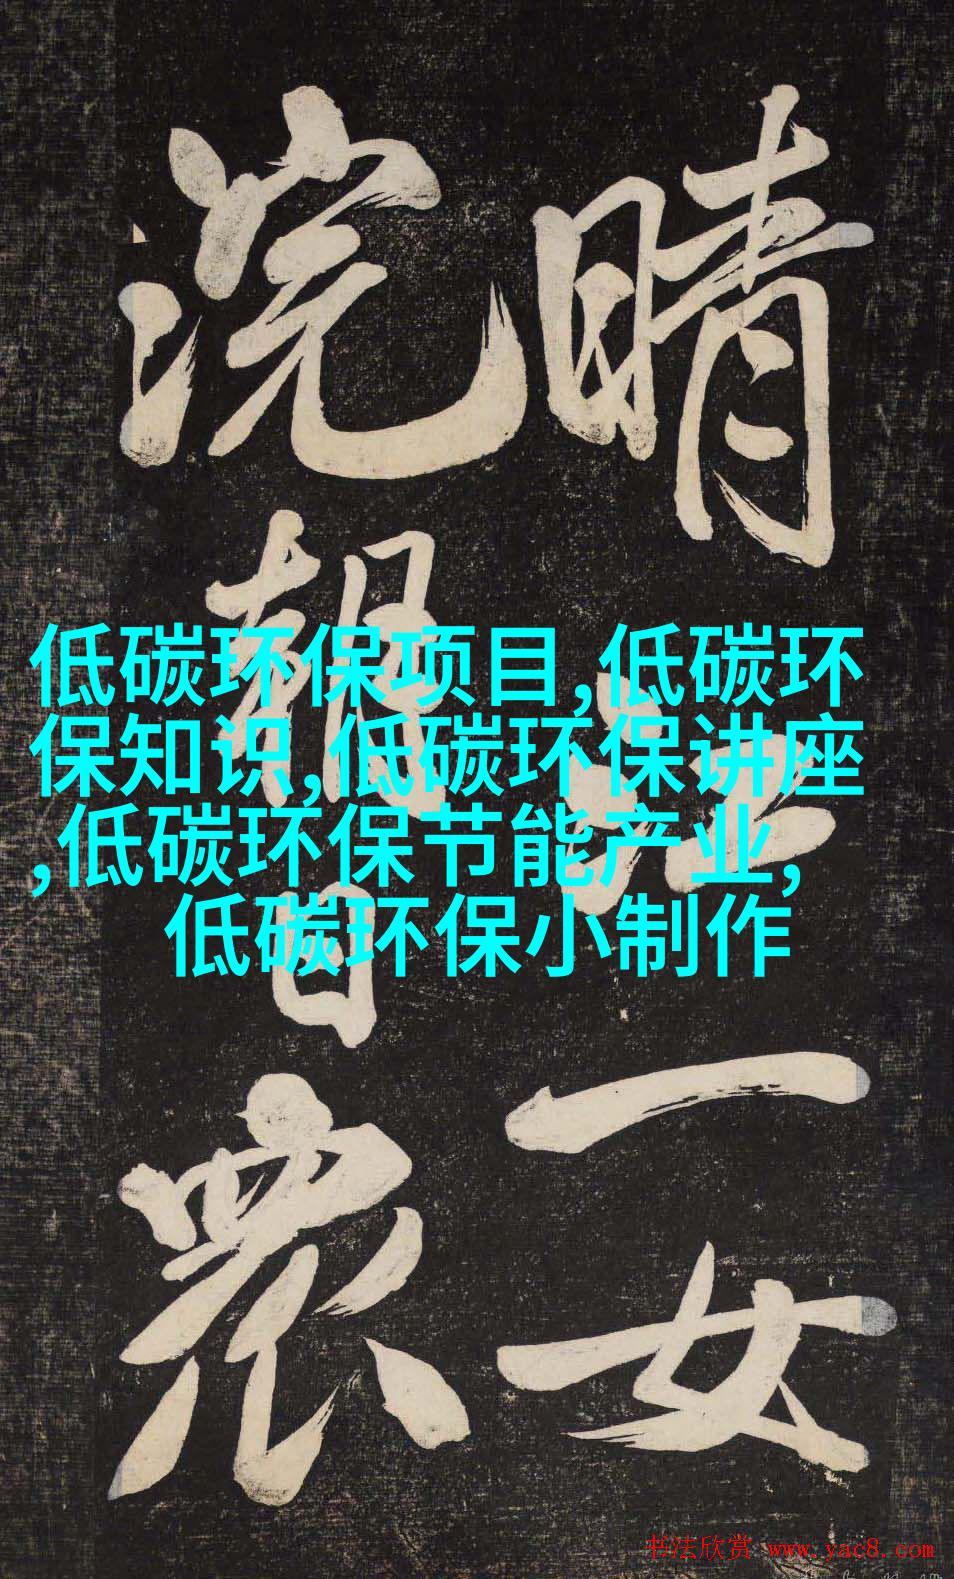 低碳环保项目,低碳环
保知识,低碳环保讲座
,低碳环保节能产业,
低碳环保小制作
晴江一女
浣朝日衆
书法欣赏 www.yac8.com